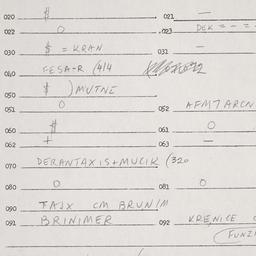 020 $ 021 —
022 O 023 DEK = - =
030 $ = KRAN 031 —
040 FESA-R (414
050 $ ) MUTNE
051 O 052 AFMTARCN
060 $ 061 O
062 + 063 —
070 DERANTAXIS+MUCIK (320
080 O 081 O
090 TAJX CM BRUNIM
091 BRINIMER 092 KRENICE
(FUNZI